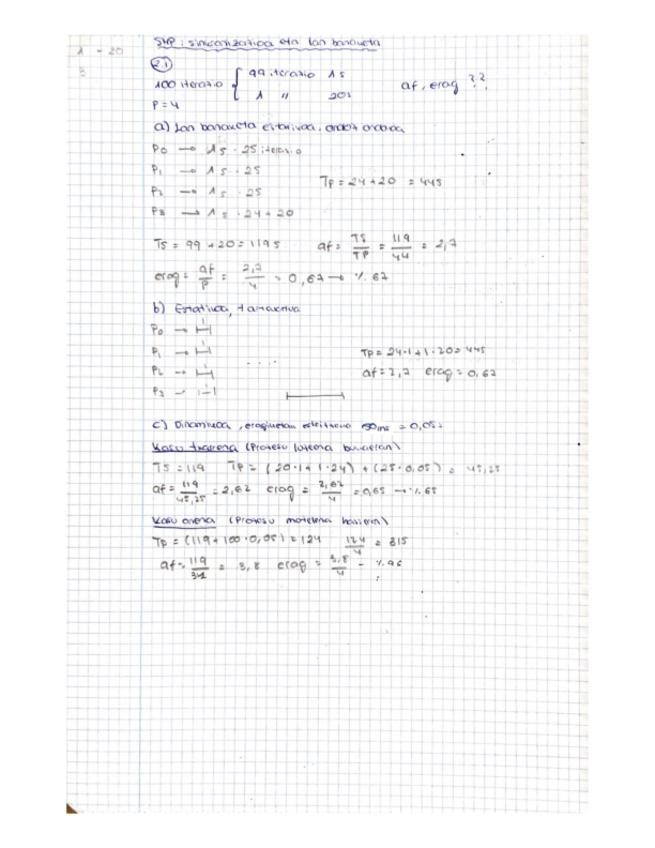 SMP: sinkronizatioa eta lan banaketa
1 - 20
3
2.1
100 iterazio { 99 iterazio 1s
1 " 20s
af, erag ??
P = 4
a) Lan banaketa estatikoa, ondoz ondokoa
P0 → 1s · 25 iterazio
P1 → 1s · 25
P2 → 1s · 25
P3 → 1s · 24 + 20
Tp = 24 + 20 = 44s
Ts = 99 + 20 = 119s af = TS/TP = 119/44 = 2,7
erag = af/P = 2,7/4 = 0,67 → % 67
b) Estatikoa, tartekatua
P0 →
P1 →
P2 →
P3 →
....
Tp = 24·1 + 1·20 = 44s
af = 2,7 erag = 0,67
c) Dinamikoa, eragiketan 50ms = 0,05s
Kasu txarrena (Prozesu luzeena bukaeran)
TS = 119 Tp = (20·1 + 1·24) + (25·0,05) = 45,25
af = 119/45,25 = 2,62 erag = 2,62/4 = 0,65 → % 65
Kasu onena (Prozesu motelena hasieran)
Tp = (119 + 100·0,05) = 124 124/4 = 315
af = 119/31 = 3,8 erag = 3,8/4 - % 96